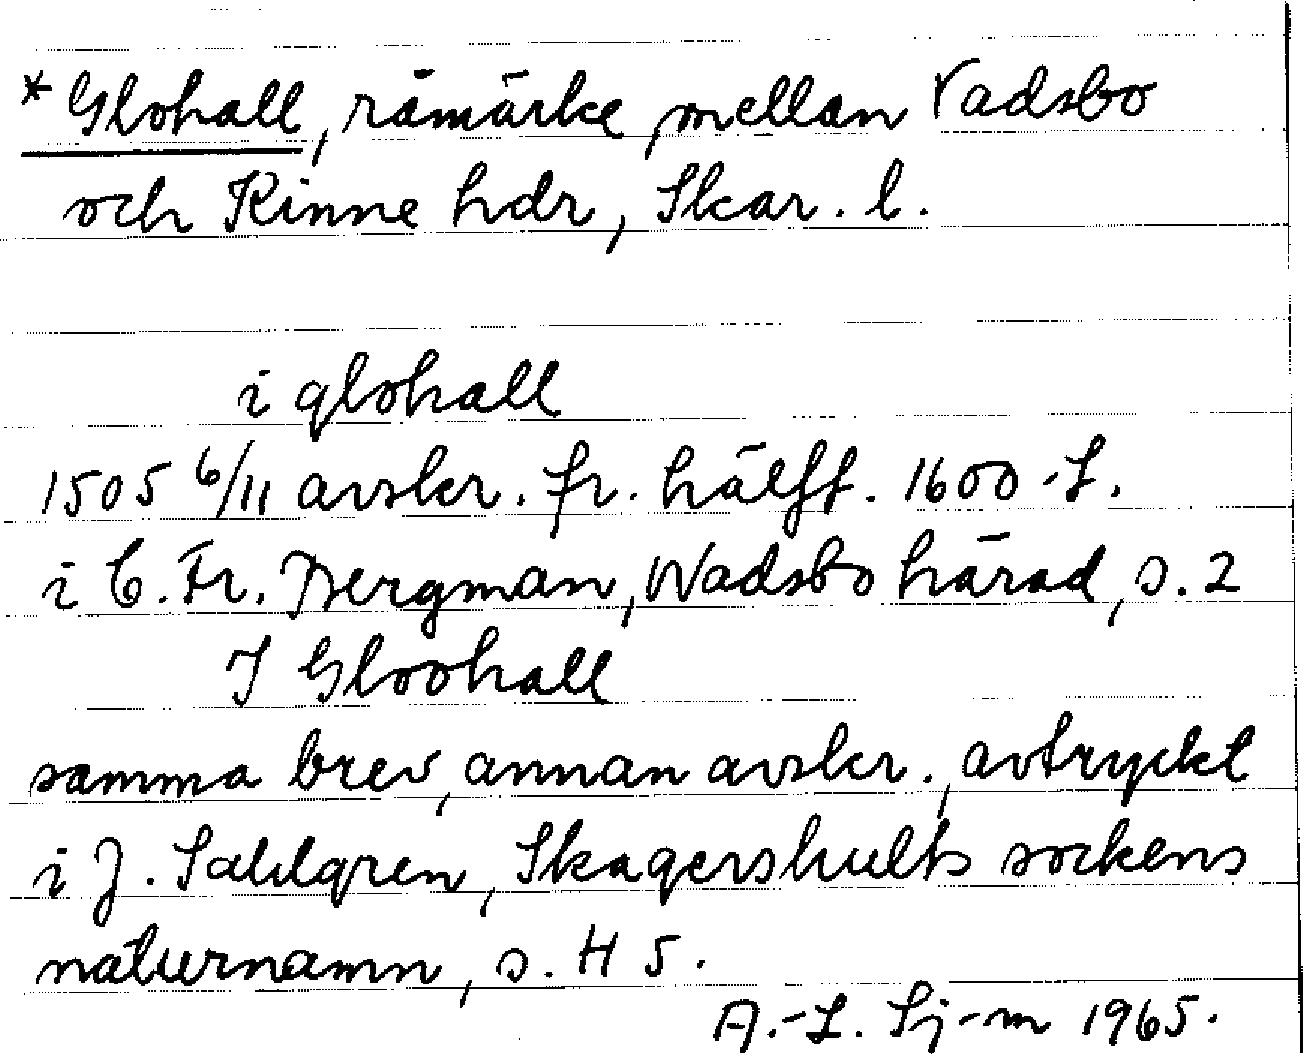 *Glohall, råmärke, mellan Vadsbo
och Kinne hdr, Skar. l.
i glohall
1505 6/11 avskr. fr. hälft. 1600-t.
i C. Fr. Bergman, Wadsbo härad, s. 2
J Gloohall
samma brev, annan avskr., avtryckt
i J. Sahlgren, Skagershults sockens
naturnamn, s. H 5.
A.-L. Sj-m 1965.